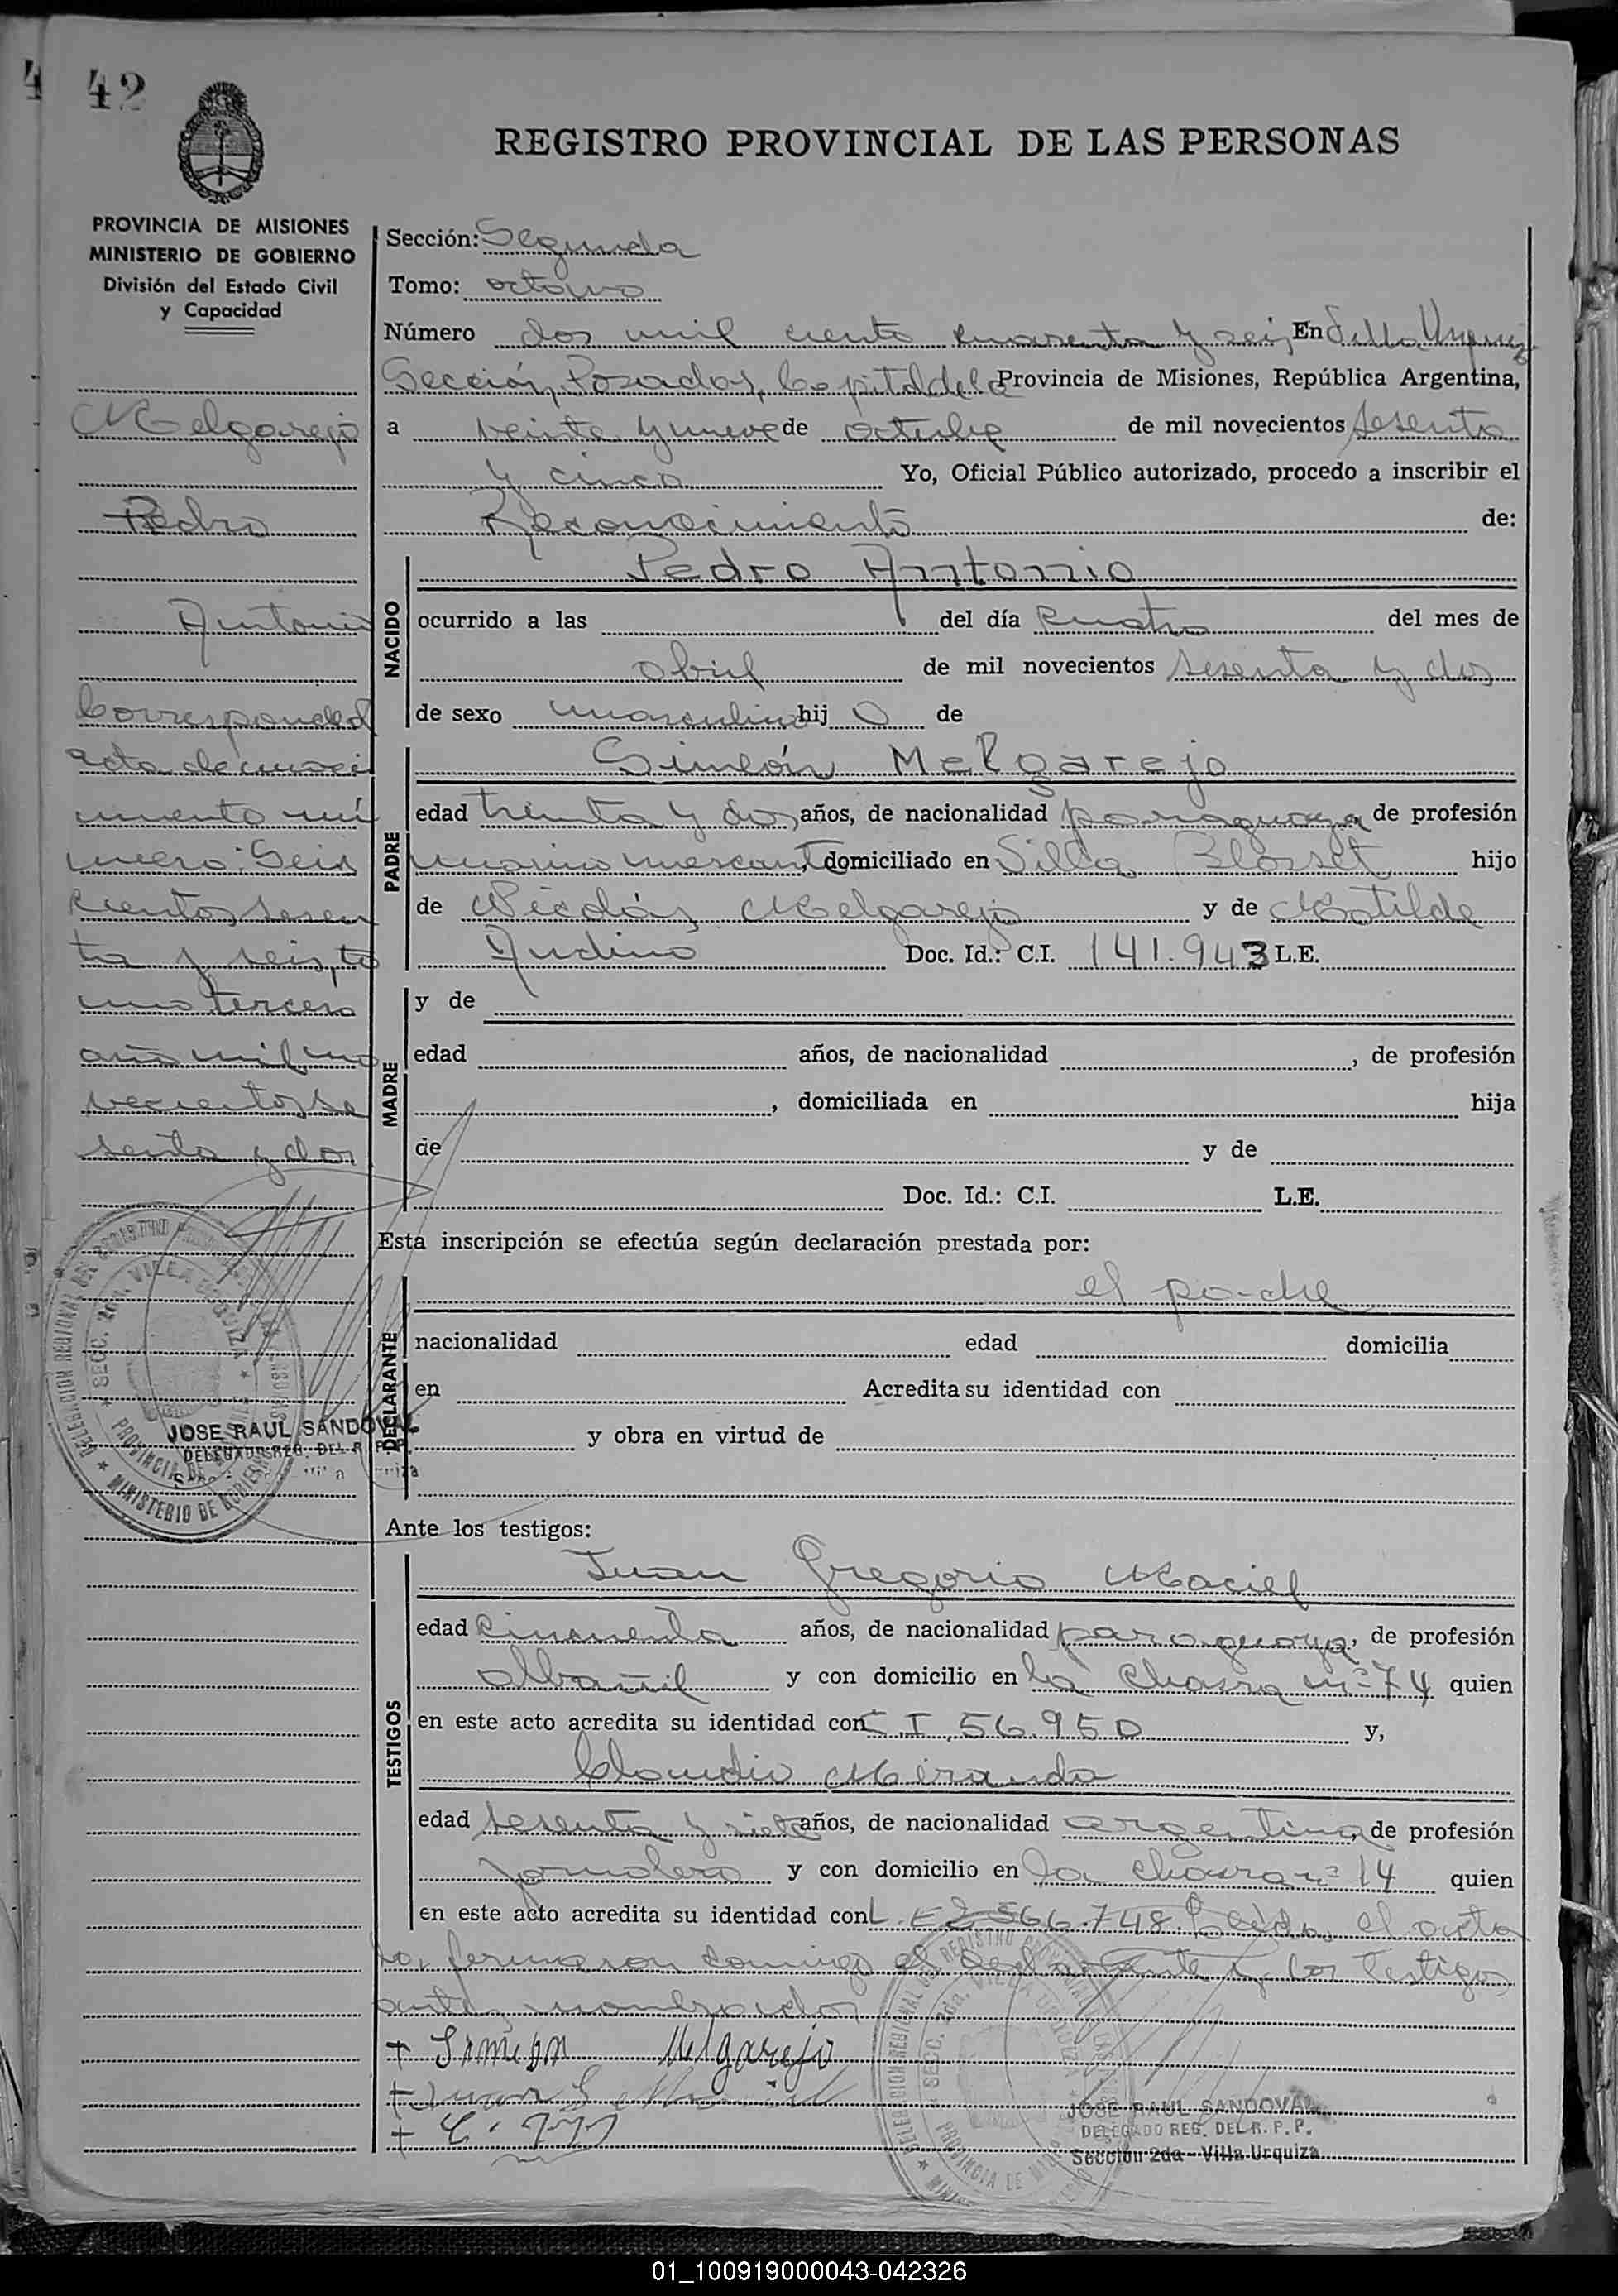 4 42
REGISTRO PROVINCIAL DE LAS PERSONAS
PROVINCIA DE MISIONES
MINISTERIO DE GOBIERNO
División del Estado Civil
y Capacidad
Melgarejo
Pedro
Antonio
Corresponde al
acta de naci
miento nú
mero: Seis
cientos sesen
ta y seis, to
mo tercero
año mil no
vecientos se
senta y dos
DELEGACION REGIONAL DEL REGISTRO
SECC. 2da. VILLA URQUIZA
PROVINCIA DE
MINISTERIO DE GOBIERNO
JOSE RAUL SANDOVAL
DELEGADO REG. DEL R. P. P.
Sección: Segunda
Tomo: octavo
Número dos mil ciento cuarenta y seis En Villa Urquiza
Sección, Posadas, Capital de la Provincia de Misiones, República Argentina,
a veinte y nueve de octubre de mil novecientos sesenta
y cinco Yo, Oficial Público autorizado, procedo a inscribir el
Reconocimiento de:
NACIDO
Pedro Antonio
ocurrido a las del día cuatro del mes de
abril de mil novecientos sesenta y dos
de sexo masculino hij o de
PADRE
Simeón Melgarejo
edad treinta y dos años, de nacionalidad paraguaya de profesión
marino mercante domiciliado en Villa Blosset hijo
de Nicolás Melgarejo y de Matilde
Doc. Id.: C.I. 141.943 L.E.
MADRE
y de
edad años, de nacionalidad , de profesión
, domiciliada en hija
de y de
Doc. Id.: C.I. L.E.
Esta inscripción se efectúa según declaración prestada por:
DECLARANTE
el padre
nacionalidad edad domicilia
en Acredita su identidad con
y obra en virtud de
Ante los testigos:
TESTIGOS
Juan Gregorio Maciel
edad cincuenta años, de nacionalidad paraguaya, de profesión
albañil y con domicilio en la Chacra nº 74 quien
en este acto acredita su identidad con C.I. 56.950 y,
Claudio Miranda
edad sesenta y siete años, de nacionalidad argentina, de profesión
jornalero y con domicilio en la Chacra nº 14 quien
en este acto acredita su identidad con L.E 2.566.748. Leída el acta
la firmaron conmigo el declarante y los testigos
antes nombrados
+ Simeon Melgarejo
+ Juan G Maciel
DELEGACION REGIONAL DEL REGISTRO
SECC. 2da. VILLA URQUIZA
PROVINCIA DE
JOSE RAUL SANDOVAL
DELEGADO REG. DEL R. P. P.
Sección 2da - Villa Urquiza
01_100919000043-042326